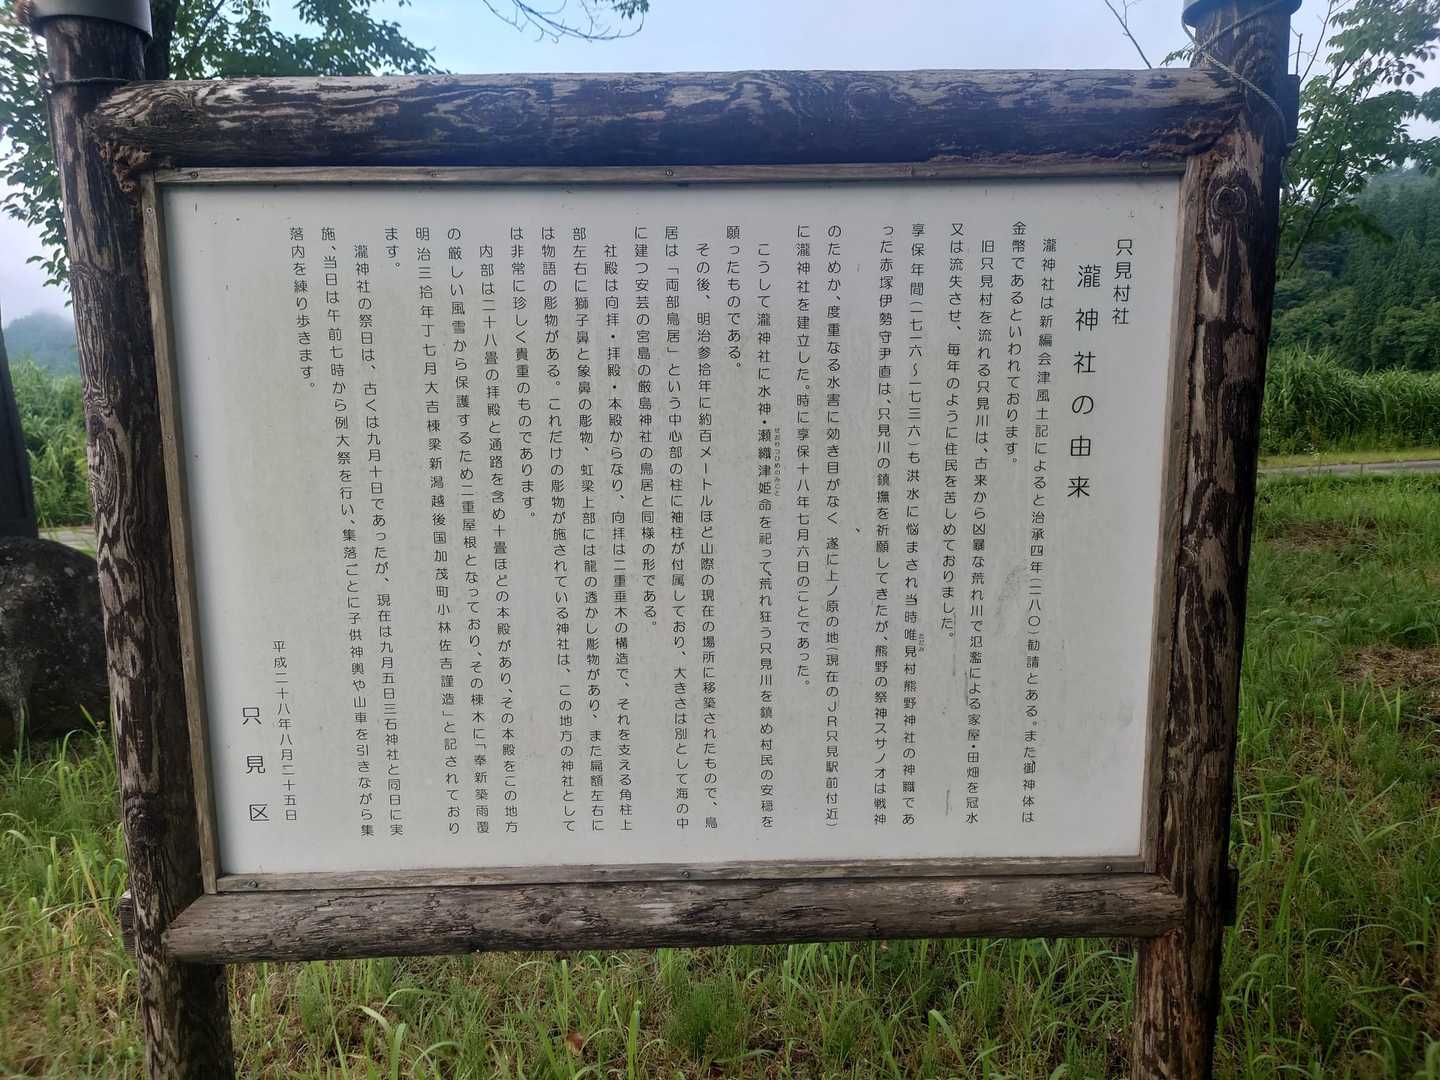 只見村社
瀧神社の由来
瀧神社は新編会津風土記によると治承四年(一一八〇)勧請とある。また御神体は
金幣であるといわれております。
旧只見村を流れる只見川は、古来から凶暴な荒れ川で氾濫による家屋・田畑を冠水
又は流失させ、毎年のように住民を苦しめておりました。
享保年間(一七一六〜一七三六)も洪水に悩まされ当時唯見村熊野神社の神職であ
ただみ
った赤塚伊勢守尹直は、只見川の鎮撫を祈願してきたが、熊野の祭神スサノオは戦神
のためか、度重なる水害に効き目がなく、遂に上ノ原の地(現在のJR只見駅前付近)
に瀧神社を建立した。時に享保十八年七月六日のことであった。
こうして瀧神社に水神・瀬織津姫命を祀って荒れ狂う只見川を鎮め村民の安穏を
せおりつひめのみこと
願ったものである。
その後、明治参拾年に約百メートルほど山際の現在の場所に移築されたもので、鳥
居は「両部鳥居」という中心部の柱に袖柱が付属しており、大きさは別として海の中
に建つ安芸の宮島の厳島神社の鳥居と同様の形である。
社殿は向拝・拝殿・本殿からなり、向拝は二重垂木の構造で、それを支える角柱上
部左右に獅子鼻と象鼻の彫物、虹梁上部には龍の透かし彫物があり、また扁額左右に
は物語の彫物がある。これだけの彫物が施されている神社は、この地方の神社として
は非常に珍しく貴重のものであります。
内部は二十八畳の拝殿と通路を含め十畳ほどの本殿があり、その本殿をこの地方
の厳しい風雪から保護するため二重屋根となっており、その棟木に「奉新築雨覆
明治三拾年丁七月大吉棟梁新潟越後国加茂町小林佐吉謹造」と記されており
ます。
瀧神社の祭日は、古くは九月十日であったが、現在は九月五日三石神社と同日に実
施、当日は午前七時から例大祭を行い、集落ごとに子供神輿や山車を引きながら集
落内を練り歩きます。
平成二十八年八月二十五日
只見区